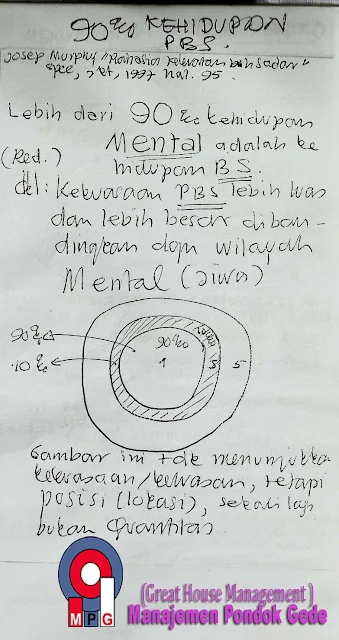 90% KEHIDUPAN
PBS.
Josep Murphy "Rahasia Kekuatan bwh Sadar"
Spe, Jkt, 1997 hal. 95.
Lebih dari 90% kehidupan
Mental adalah ke
(Red.)
hidupan BS.
del: Kekuasaan PBS lebih luas
dan lebih besar diban-
dingkan dgn wilayah
Mental (Jiwa)
90%
10%
90%
1
3
5
Gambar ini tdk menunjukka
kekuasaan/kawasan, tetapi
posisi (lokasi), sekali lagi
bukan Quantitas
MPG
(Great House Management)
Manajemen Pondok Gede